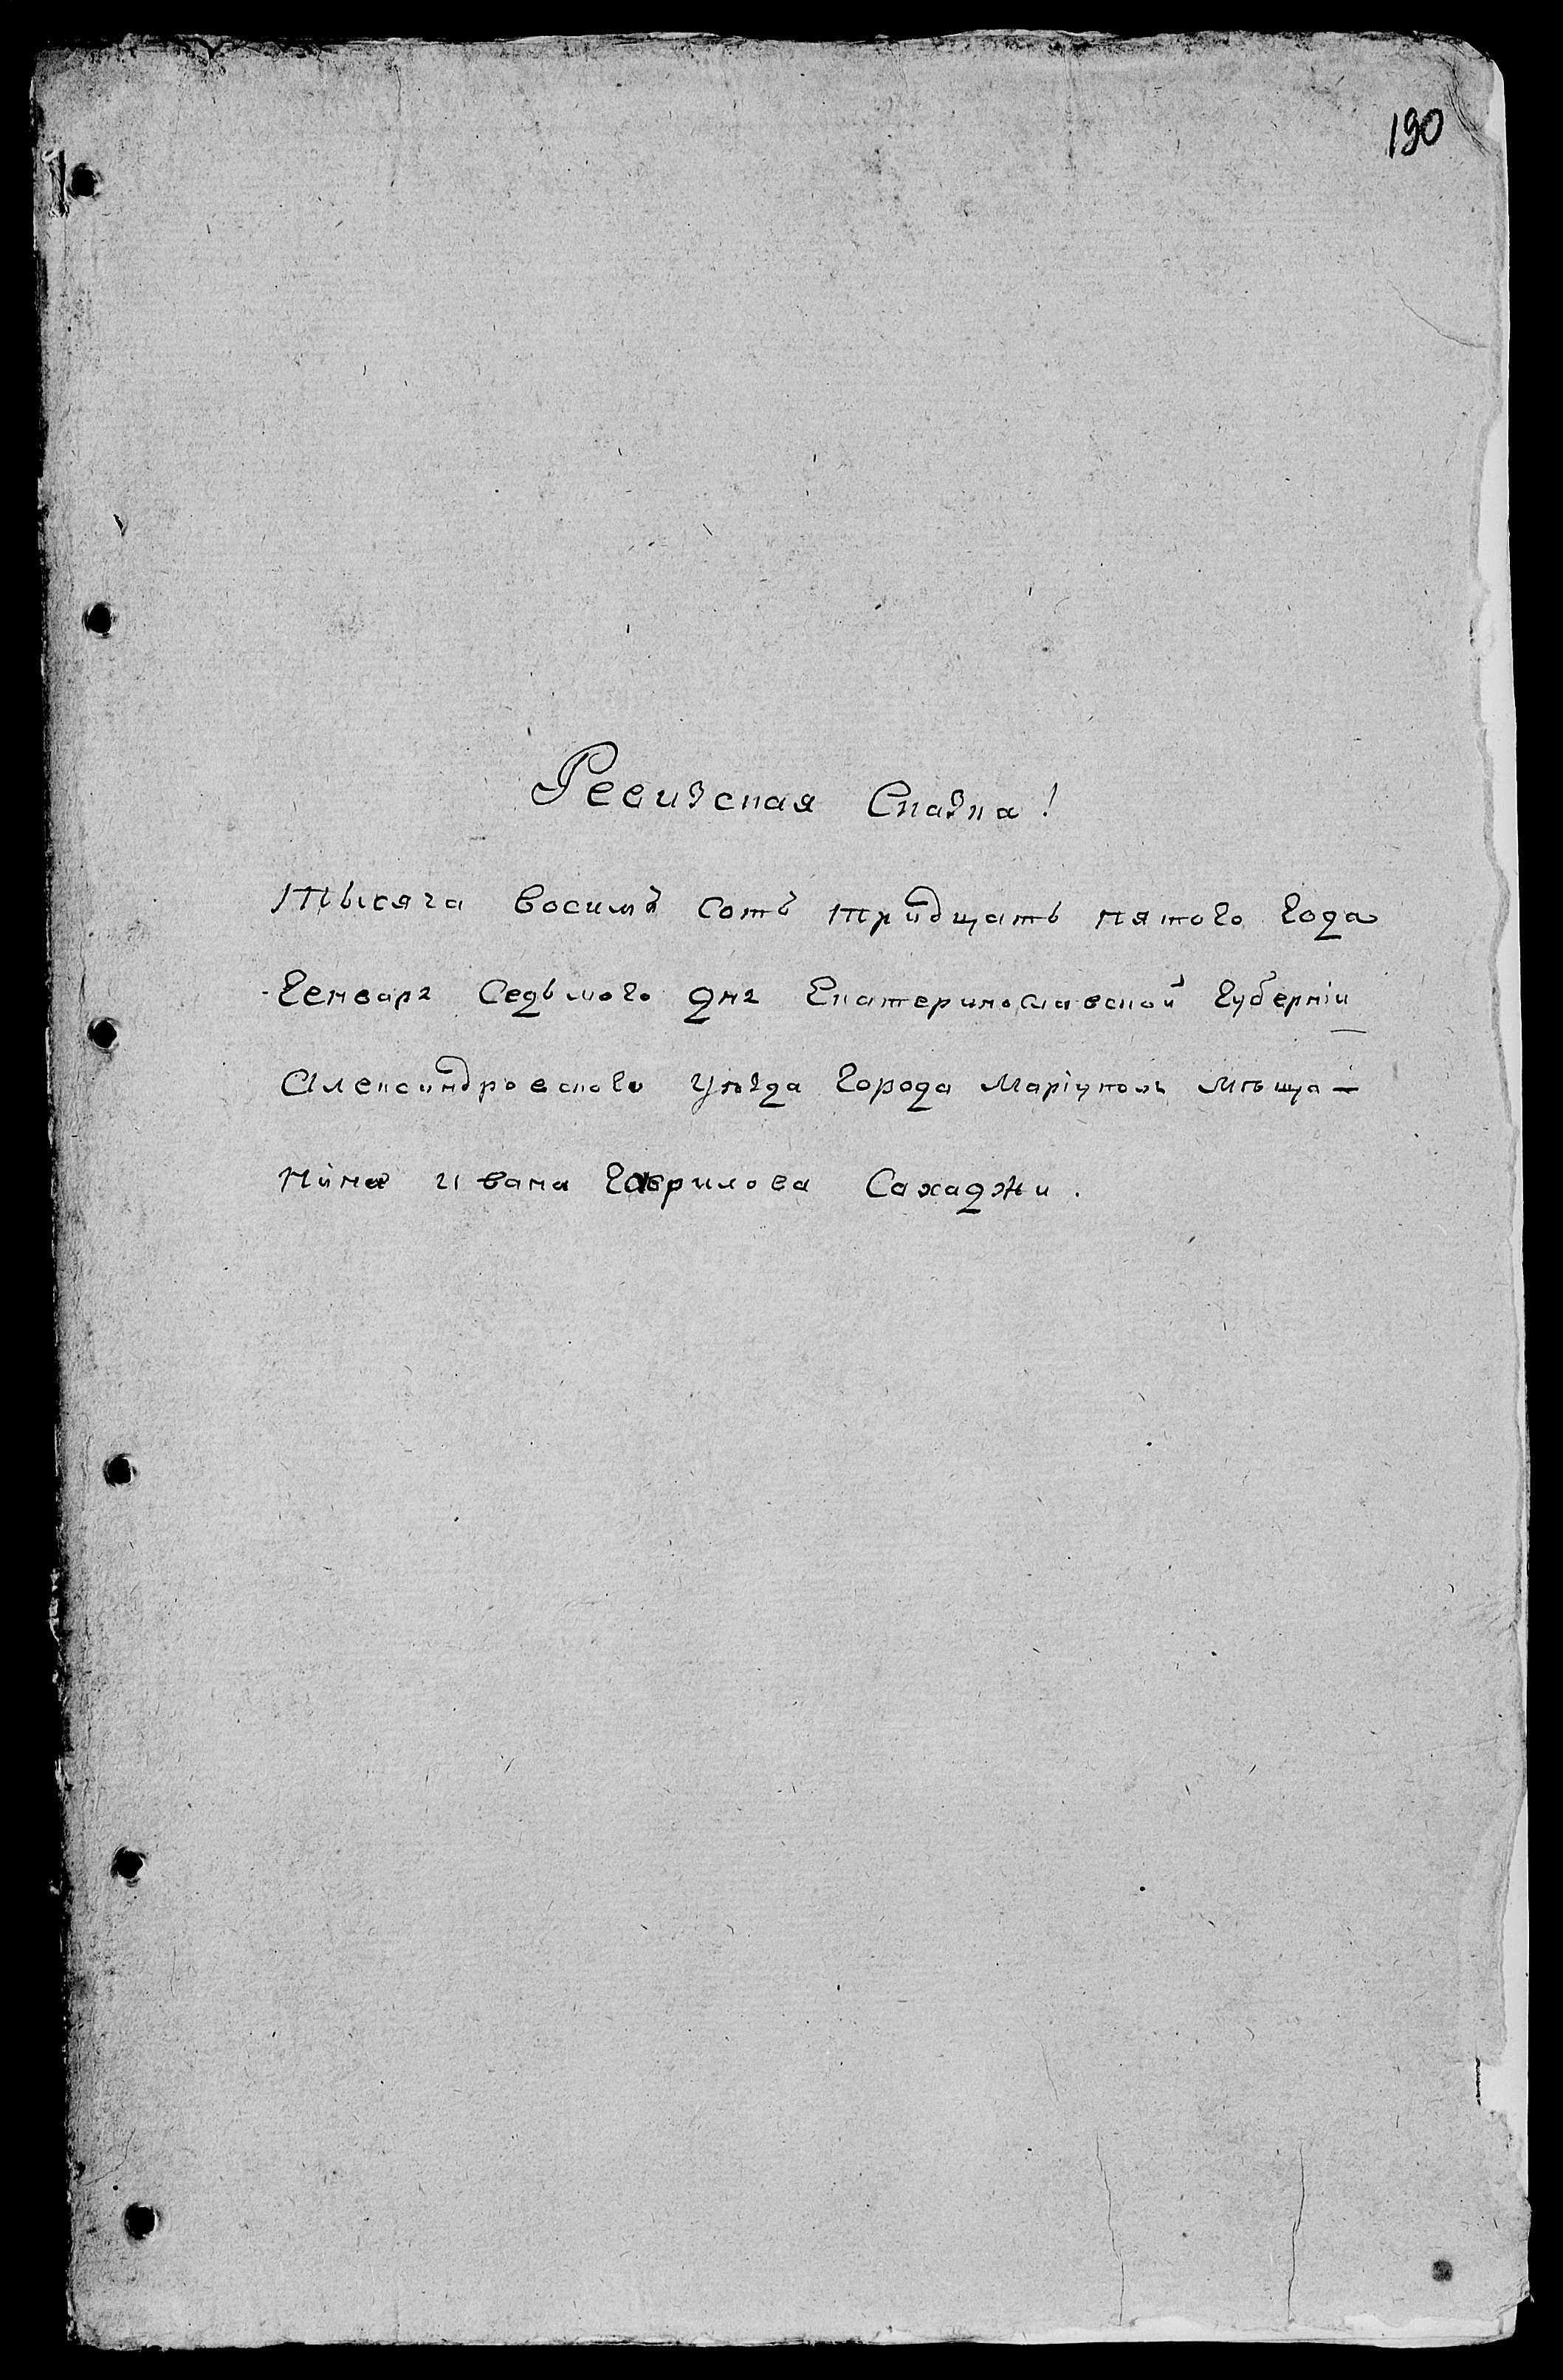 190
Ревизская Сказка!
Тысяча восимъ сотъ тридцать пятого года
Генваря Седьмого дня Екатеринославской Губерніи
Александровского уѣзда Города Маріуполь Мѣща-
нина Ивана Гаврилова Сахаджи.